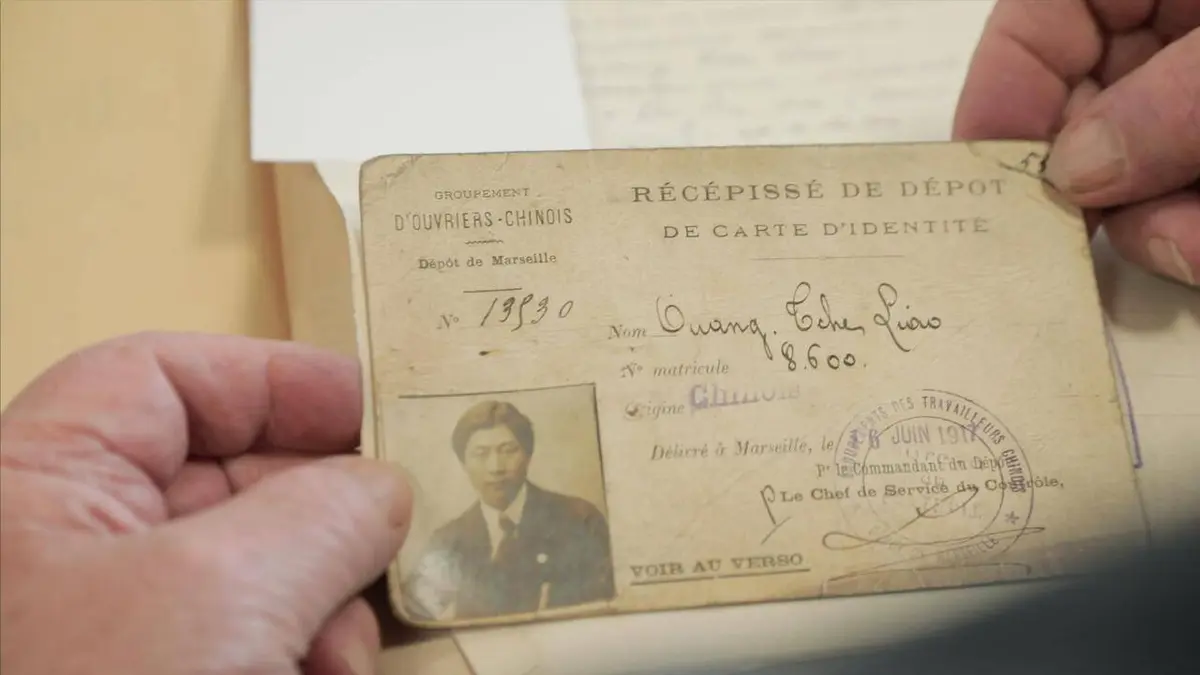 GROUPEMENT
D'OUVRIERS-CHINOIS
Dépôt de Marseille
No 13930
RÉCÉPISSÉ DE DÉPOT
DE CARTE D'IDENTITÉ
Nom Ouang. Tche Liao
No matricule 8.600.
Origine Chinois
Délivré à Marseille, le 6 JUIN 1917
Pr le Commandant du Dépôt
Le Chef de Service du Contrôle,
DES TRAVAILLEURS CHINOIS
MARSEILLE
VOIR AU VERSO